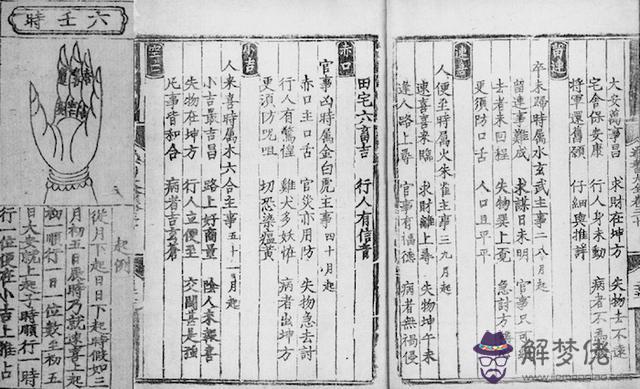 六壬時
起例
從月下起日日下起時假如三
月初五日辰時乃就速喜上起
初一順行一日一位數至初五
日大安就上起子時順行一時
行一位便在小吉上推占
大安萬事昌 求財在坤方 失物去不遠
宅舍保安康 行人身未動 病者不
將軍還舊願 仔細與推詳
留連
卒未歸時屬水玄武主事二八月起
留連事難成 求謀日未明 官事只可
去者未回程 失物巽上覓 急討方
更須防口舌 人口且平平
速喜
人便至時屬火朱雀主事三九月起
速喜喜來臨 求財離上尋 失物坤午未
逢人路上尋 官事有福德 病者無禍侵
田宅六畜吉 行人有信音
赤口
官事凶時屬金白虎主事四十月起
赤口主口舌 官災亦用防 失物急去討
行人有驚惶 雞犬多妖怪 病者出坤方
更須防咒咀 切恐染瘟黄
小吉
人來喜時屬木六合主事五十一月起
小吉最吉昌 路上好商量 陰人來報喜
失物在坤方 行人立便至 交關甚是強
凡事皆和合 病者吉玄蒼
空亡
解梦佬